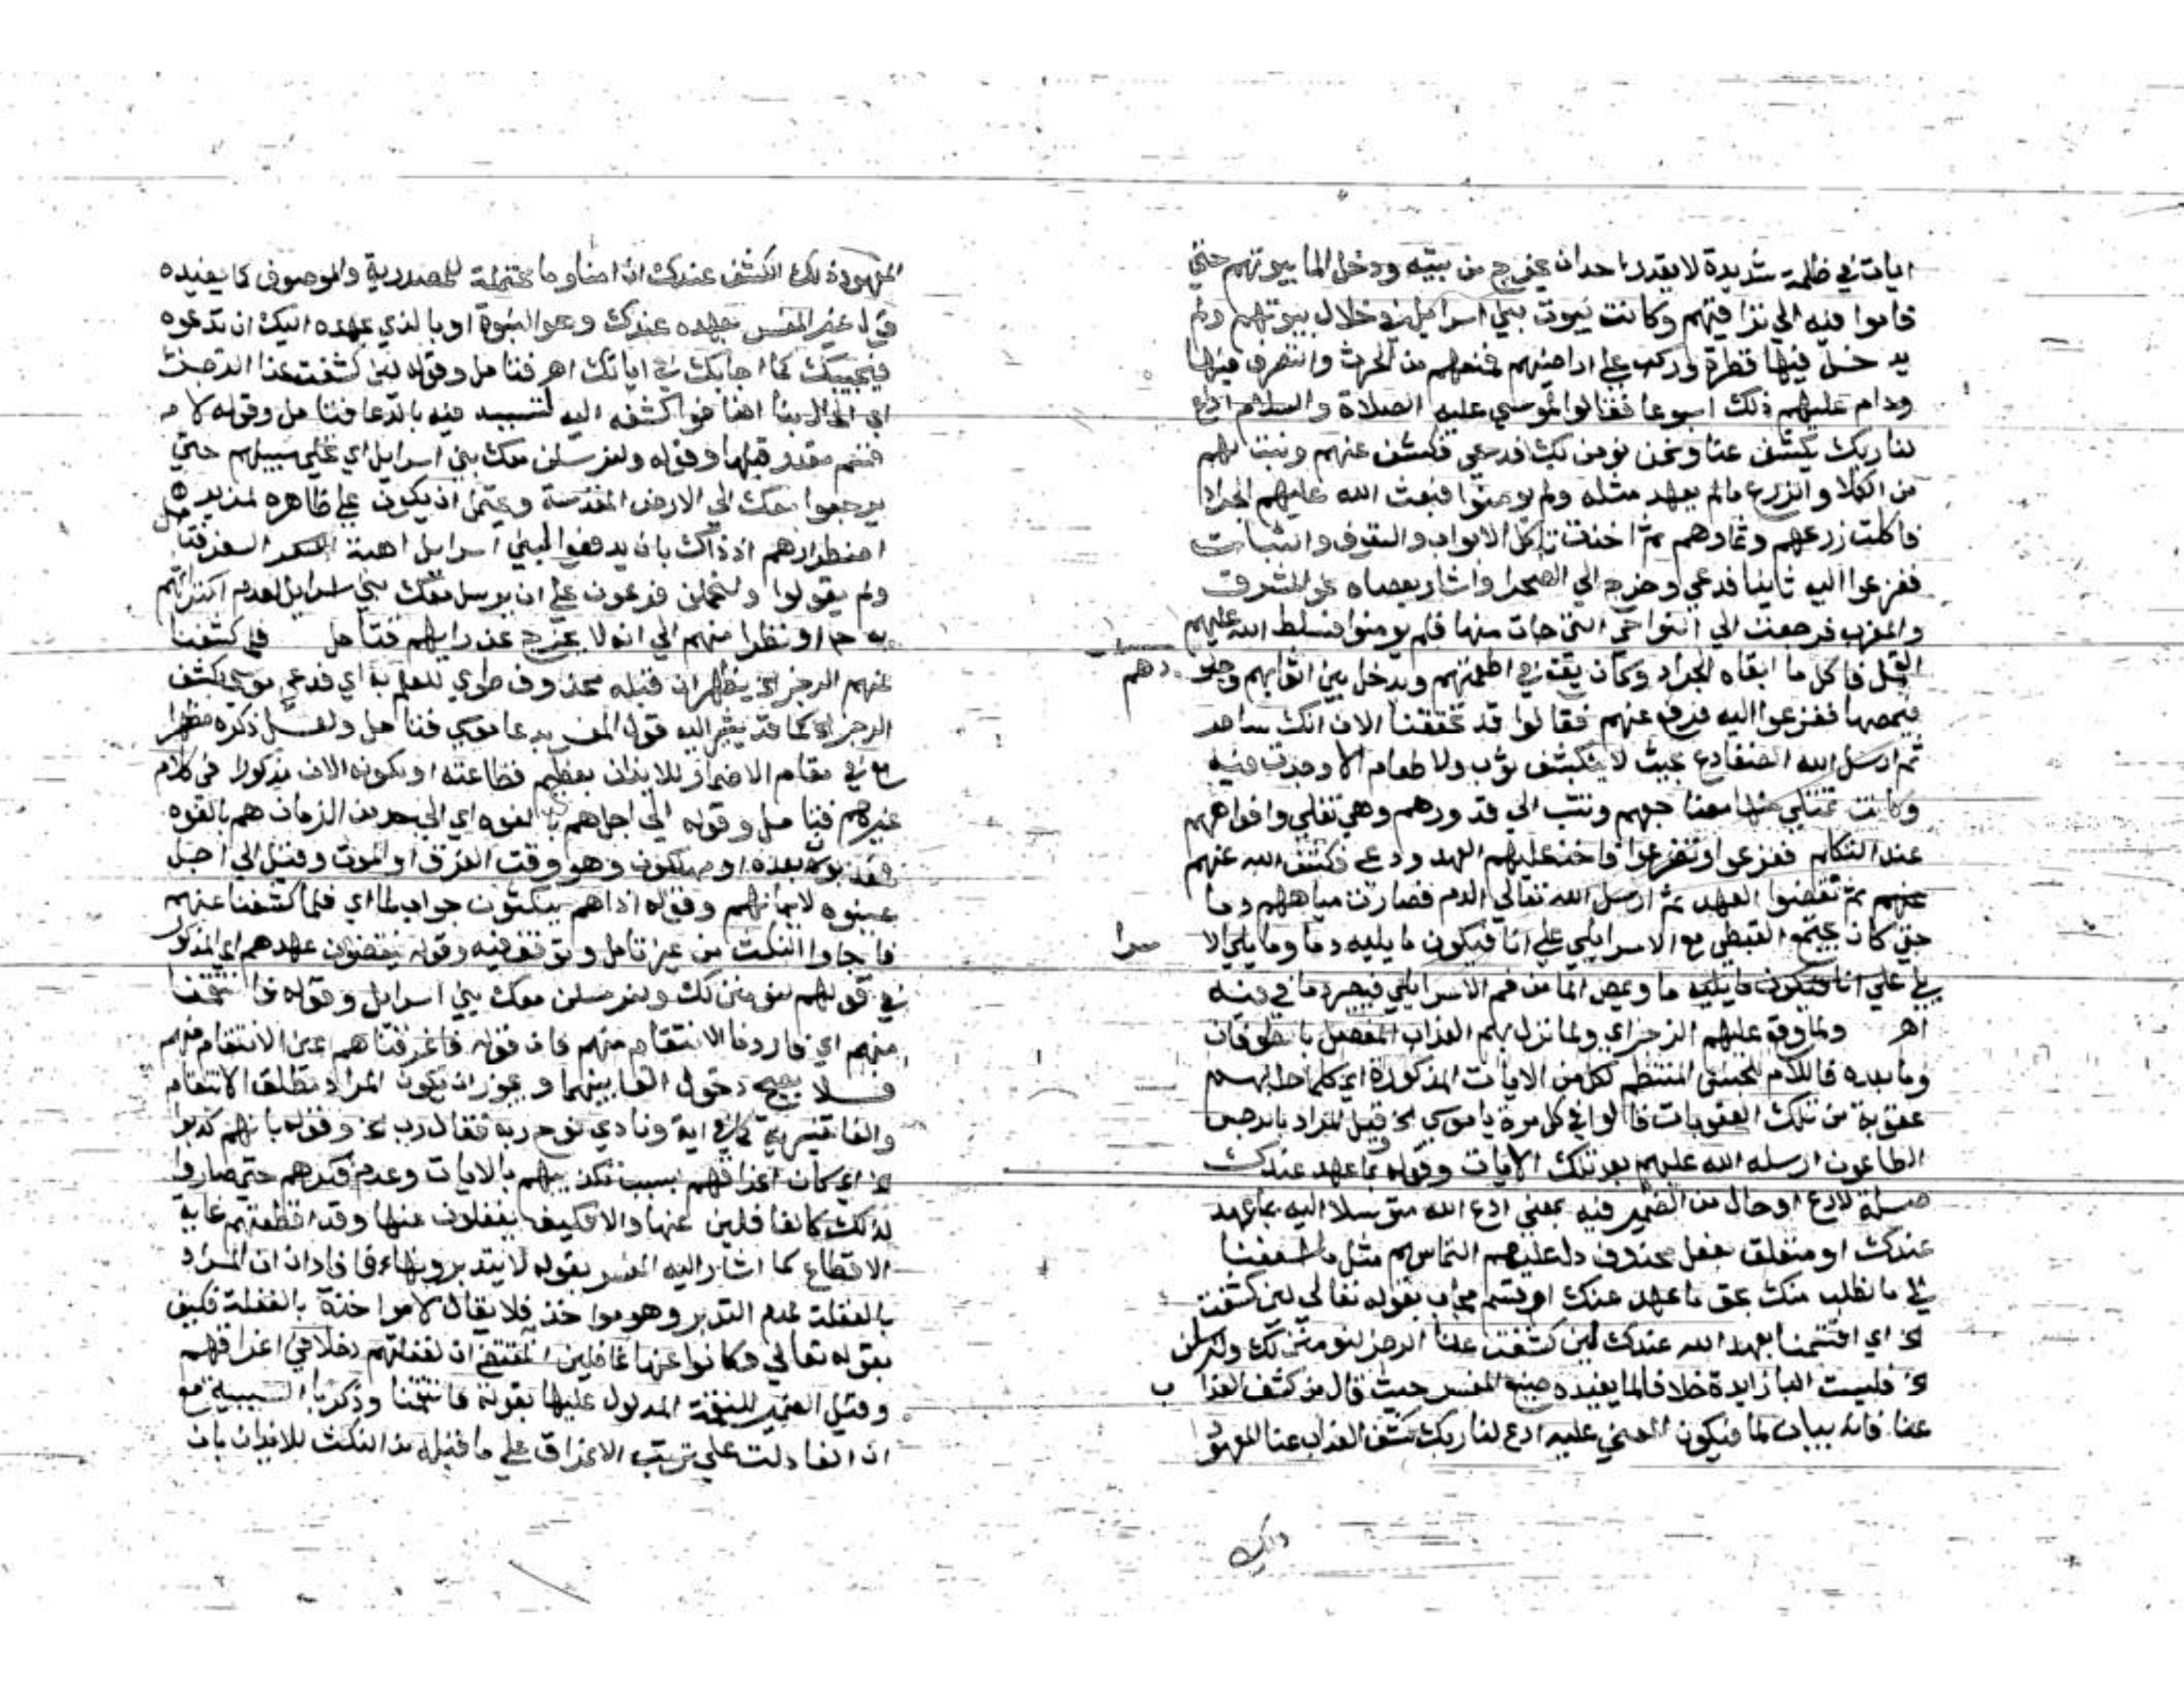 ايام في ظلمة شديدة لا يقدر احد ان يخرج من بيته ودخل الما بيوتهم حتي
قاموا فيه الي تراقيهم وكانت بيوت بني اسرايل في خلال بيوتهم ولم
يدخل فيها قطرة وركب علي اراضيهم فمنعهم من الحرث والتصرف فيها
ودام عليهم ذلك اسبوعا فقالوا لموسي عليه الصلاة والسلام ادع
لنا ربك يكشف عنا ونحن نومن بك فدعي فكشف عنهم ونبت لهم
من الكلا والزرع مالم يعهد مثله ولم يومنوا فبعث الله عليهم الجراد
فاكلت زرعهم وثمارهم ثم اخذت تاكل الابواب والسقوف والثياب
ففزعوا اليه ثانيا فدعي وخرج الي الصحرا واشار بعصاه نحو المشرق
والمغرب فرجعت الي النواحي التي جات منها فلم يومنوا فسلط الله عليهم
القمل فاكل ما ابقاه الجراد وكان يقع في اطعمتهم ويدخل بين اثوابهم وجلودهم
فيمصها ففزعوا اليه فرفع عنهم فقالوا قد تحققنا الان انك ساحر
ثم ارسل الله الضفادع بحيث لا ينكشف ثوب ولا طعام الا وجدت فيه
وكانت تمتلي منها مضاجعهم وتثب الي قدورهم وهي تغلي وافواههم
عند التكلم ففزعوا وتضرعوا فاخذ عليهم العهد ودعي فكشف الله عنهم
عنهم ثم نقضوا العهد ثم ارسل الله تعالي الدم فصارت مياههم دما
حتي كان يجتمع القبطي مع الاسرايلي علي انا فيكون ما يليه دما وما يلي الا سرا
يلي علي انا فيكون ما يليه ما ويمص الما من فم الاسرايلي فيصير دما في فيه
اهـ ولما وقع عليهم الرجز اي ولما نزل بهم العذاب المفصل بالطوفان
وما بعده فاللام للجنس المنتظم لكل من الايات المذكورة اي كلما حل بهم
عقوبة من تلك العقوبات قالوا في كل مرة يا موسي الخ وقيل المراد بالرجس
الطاعون ارسله الله عليهم بعد تلك الايات وقوله بما عهد عندك
صلة لادع او حال من الضمير فيه بمعني ادع الله متوسلا اليه بما عهد
عندك او متعلق بفعل محذوف دل عليه التماسهم مثل ما اسعفنا
الي ما نطلب منك بحق ما عهد عندك او قسم مجاب بقوله تعالي لين كشفت
الخ اي اقسمنا بعهد الله عندك لين كشفت عنا الرجز لنومنن لك ولنرسلن
الخ فليست البا زايدة خلافا لما يفيده صنيع المفسر حيث قال من كشف العذاب
عنا فانه بيان لما فيكون المعني عليه ادع لنا ربك بكشف العذاب عنا المعهود
وذلك
المعهود ذلك الكشف عندك ان امنا وما محتملة للمصدرية والموصوف كما يفيده
قول غير المفسر بعهده عندك وهو النبوة او بالذي عهده اليك ان تدعوه
فيجيبك كما اجابك في اياتك اهـ فتامل وقوله لين كشفت عنا الرجز
اي الحال بنا فتامل وقوله لام
قسم مقدر قبلها وقوله ولنرسلن معك بني اسرايل اي نخلي سبيلهم حتي
يرجعوا معك الي الارض المقدسة ويحتمل ان يكون علي ظاهره لمزيد
اضطرارهم اذ ذاك بان يدفعوا لبني اسرايل اهبة السفر فتامل
ولم يقولوا ولنحملن فرعون علي ان يرسل معك بني اسرايل لعدم اكتراثهم
به او نظرا منهم الي انه لا يخرج عن رايهم فتامل فلما كشفنا
عنهم الرجز الخ يظهر ان قبله محذوف طوي للعلم به اي فدعي موسي بكشف
الرجز الخ كما قد يشير اليه قول المفسر بدعا موسي فتامل ولعل ذكره مظهرا
مع في مقام الاضمار للايذان بعظيم فظاعته او بكونه الان مذكورا في كلام
غيرهم فتامل وقوله الي اجل هم بالغوه اي الي حد من الزمان هم بالغوه
فمعذبون بعده او مهلكون وهو وقت الغرق او الموت وقيل الي اجل
عينوه لايمانهم وقوله اذا هم ينكثون جواب لما اي فلما كشفنا عنهم
فاجاوا النكث من غير تامل وتوقف فيه وقوله ينقضون عهدهم اي المذكور
في قولهم لنومنن لك ولنرسلن معك بني اسرايل وقوله فانتقمنا
منهم اي فاردنا الانتقام منهم فان قوله فاغرقناهم عين الانتقام منهم
فلا يصح دخول الفا بينهما ويجوز ان يكون المراد مطلق الانتقام
والفا تفسيرية كما في اية ونادي نوح ربه فقال رب الخ وقوله بانهم كذبوا
الخ اي كان اغراقهم بسبب تكذيبهم بالايات وعدم فكرهم حتي صاروا
لذلك كالغافلين عنها والا فكيف يغفلون عنها وقد اقطعتهم غاية
الاقطاع كما اشار اليه المفسر بقوله لا يتدبرونها اهـ فافادان ان المراد
بالغفلة عدم التدبر وهو مواخذ فلا يقال لا مواخذة بالغفلة فكيف
بقوله تعالي وكانوا عنها غافلين المقتضي ان لغفلتهم دخلا في اغراقهم
وقيل الضمير للنقمة المدلول عليها بقوله فانتقمنا وذكر با السببية مع
ان الفا دلت علي ترتب الاغراق علي ما قبله من النكث للايذان بان